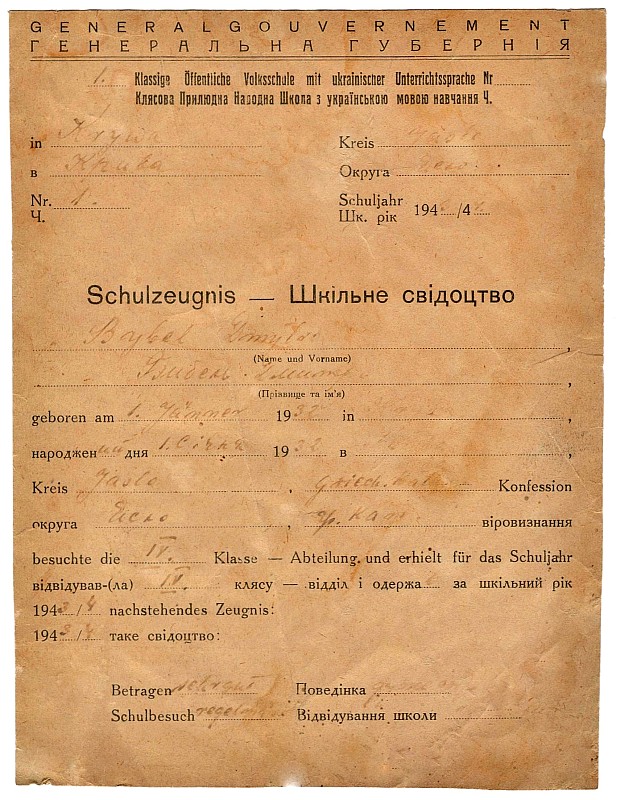 GENERALGOUVERNEMENT
ГЕНЕРАЛЬНА ГУБЕРНІЯ
1. Klassige Öffentliche Volksschule mit ukrainischer Unterrichtssprache Nr
Клясова Прилюдна Народна Школа з українською мовою навчання Ч.
in Krywa Kreis Jaslo
в Крива Округа Ясло
Nr. 1. Schuljahr
Ч. Шк. рік 194 /4
Schulzeugnis — Шкільне свідоцтво
Bybel Dmytro,
(Name und Vorname)
,
(Прізвище та ім'я)
geboren am 1. Jänner 1932 in ,
народжений дня 1. Січня 1932 в ,
Kreis Jaslo, griech. kat. Konfession
округа Ясло, гр. кат. віровизнання
besuchte die IV. Klasse — Abteilung und erhielt für das Schuljahr
відвідував-(ла) IV. клясу — відділ і одержа за шкільний рік
1943/4 nachstehendes Zeugnis:
1943/4 таке свідоцтво:
Betragen sehr gut Поведінка
Schulbesuch Відвідування школи